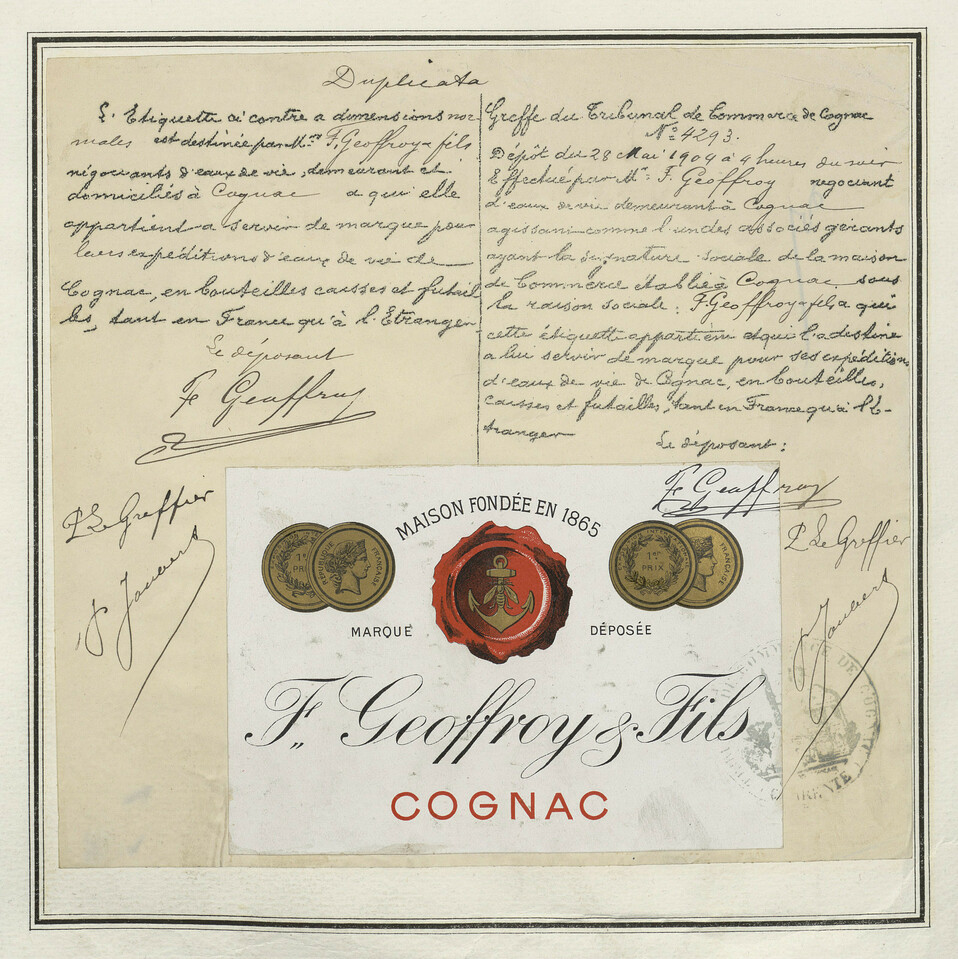 Duplicata
L'Etiquette ci contre a dimensions nor
males est destinée par Mrs F. Geoffroy & fils
négociants d'eaux de vie, demeurant et
domiciliés à Cognac a qui elle
appartient a servir de marque pour
leurs expéditions d'eaux de vie de
Cognac, en bouteilles caisses et futail
les, tant en France qu'à l'Etranger
Le déposant
F. Geoffroy
P. Le Greffier
P. Jaubert
Greffe du Tribunal de Commerce de Cognac
No 4293.
Dépôt du 28 Mai 1904 à 4 heures du soir
Effectué par Mr F. Geoffroy négociant
d'eaux de vie demeurant à Cognac
agissant comme l'un des associés gérants
ayant la signature sociale de la maison
de Commerce établie à Cognac sous
la raison sociale: F. Geoffroy & fils a qui
cette étiquette appartient et qui l'a destine
a lui servir de marque pour ses expéditions
d'eaux de vie de Cognac, en bouteilles,
caisses et futailles, tant en France qu'à l'E-
tranger
Le déposant:
F. Geoffroy
P. Le Greffier
P. Jaubert
MAISON FONDÉE EN 1865
1er PRIX
RÉPUBLIQUE FRANÇAISE
1er PRIX
FRANÇAISE
MARQUE DÉPOSÉE
F. Geoffroy & Fils
COGNAC
DE COMMERCE DE COGNAC